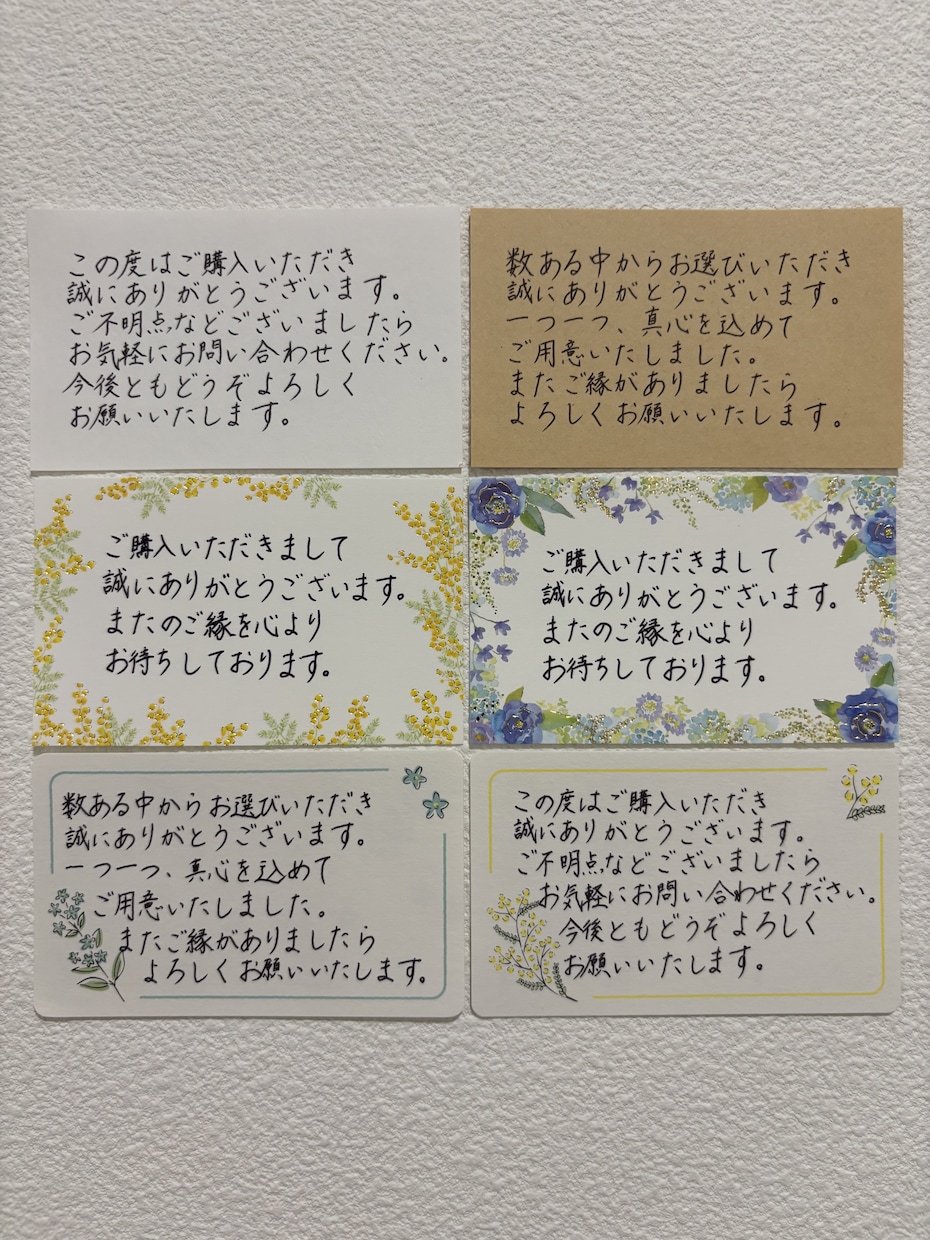 この度はご購入いただき
誠にありがとうございます。
ご不明点などございましたら
お気軽にお問い合わせください。
今後ともどうぞよろしく
お願いいたします。
数ある中からお選びいただき
誠にありがとうございます。
一つ一つ、真心を込めて
ご用意いたしました。
またご縁がありましたら
よろしくお願いいたします。
ご購入いただきまして
誠にありがとうございます。
またのご縁を心より
お待ちしております。
ご購入いただきまして
誠にありがとうございます。
またのご縁を心より
お待ちしております。
数ある中からお選びいただき
誠にありがとうございます。
一つ一つ、真心を込めて
ご用意いたしました。
またご縁がありましたら
よろしくお願いいたします。
この度はご購入いただき
誠にありがとうございます。
ご不明点などございましたら
お気軽にお問い合わせください。
今後ともどうぞよろしく
お願いいたします。